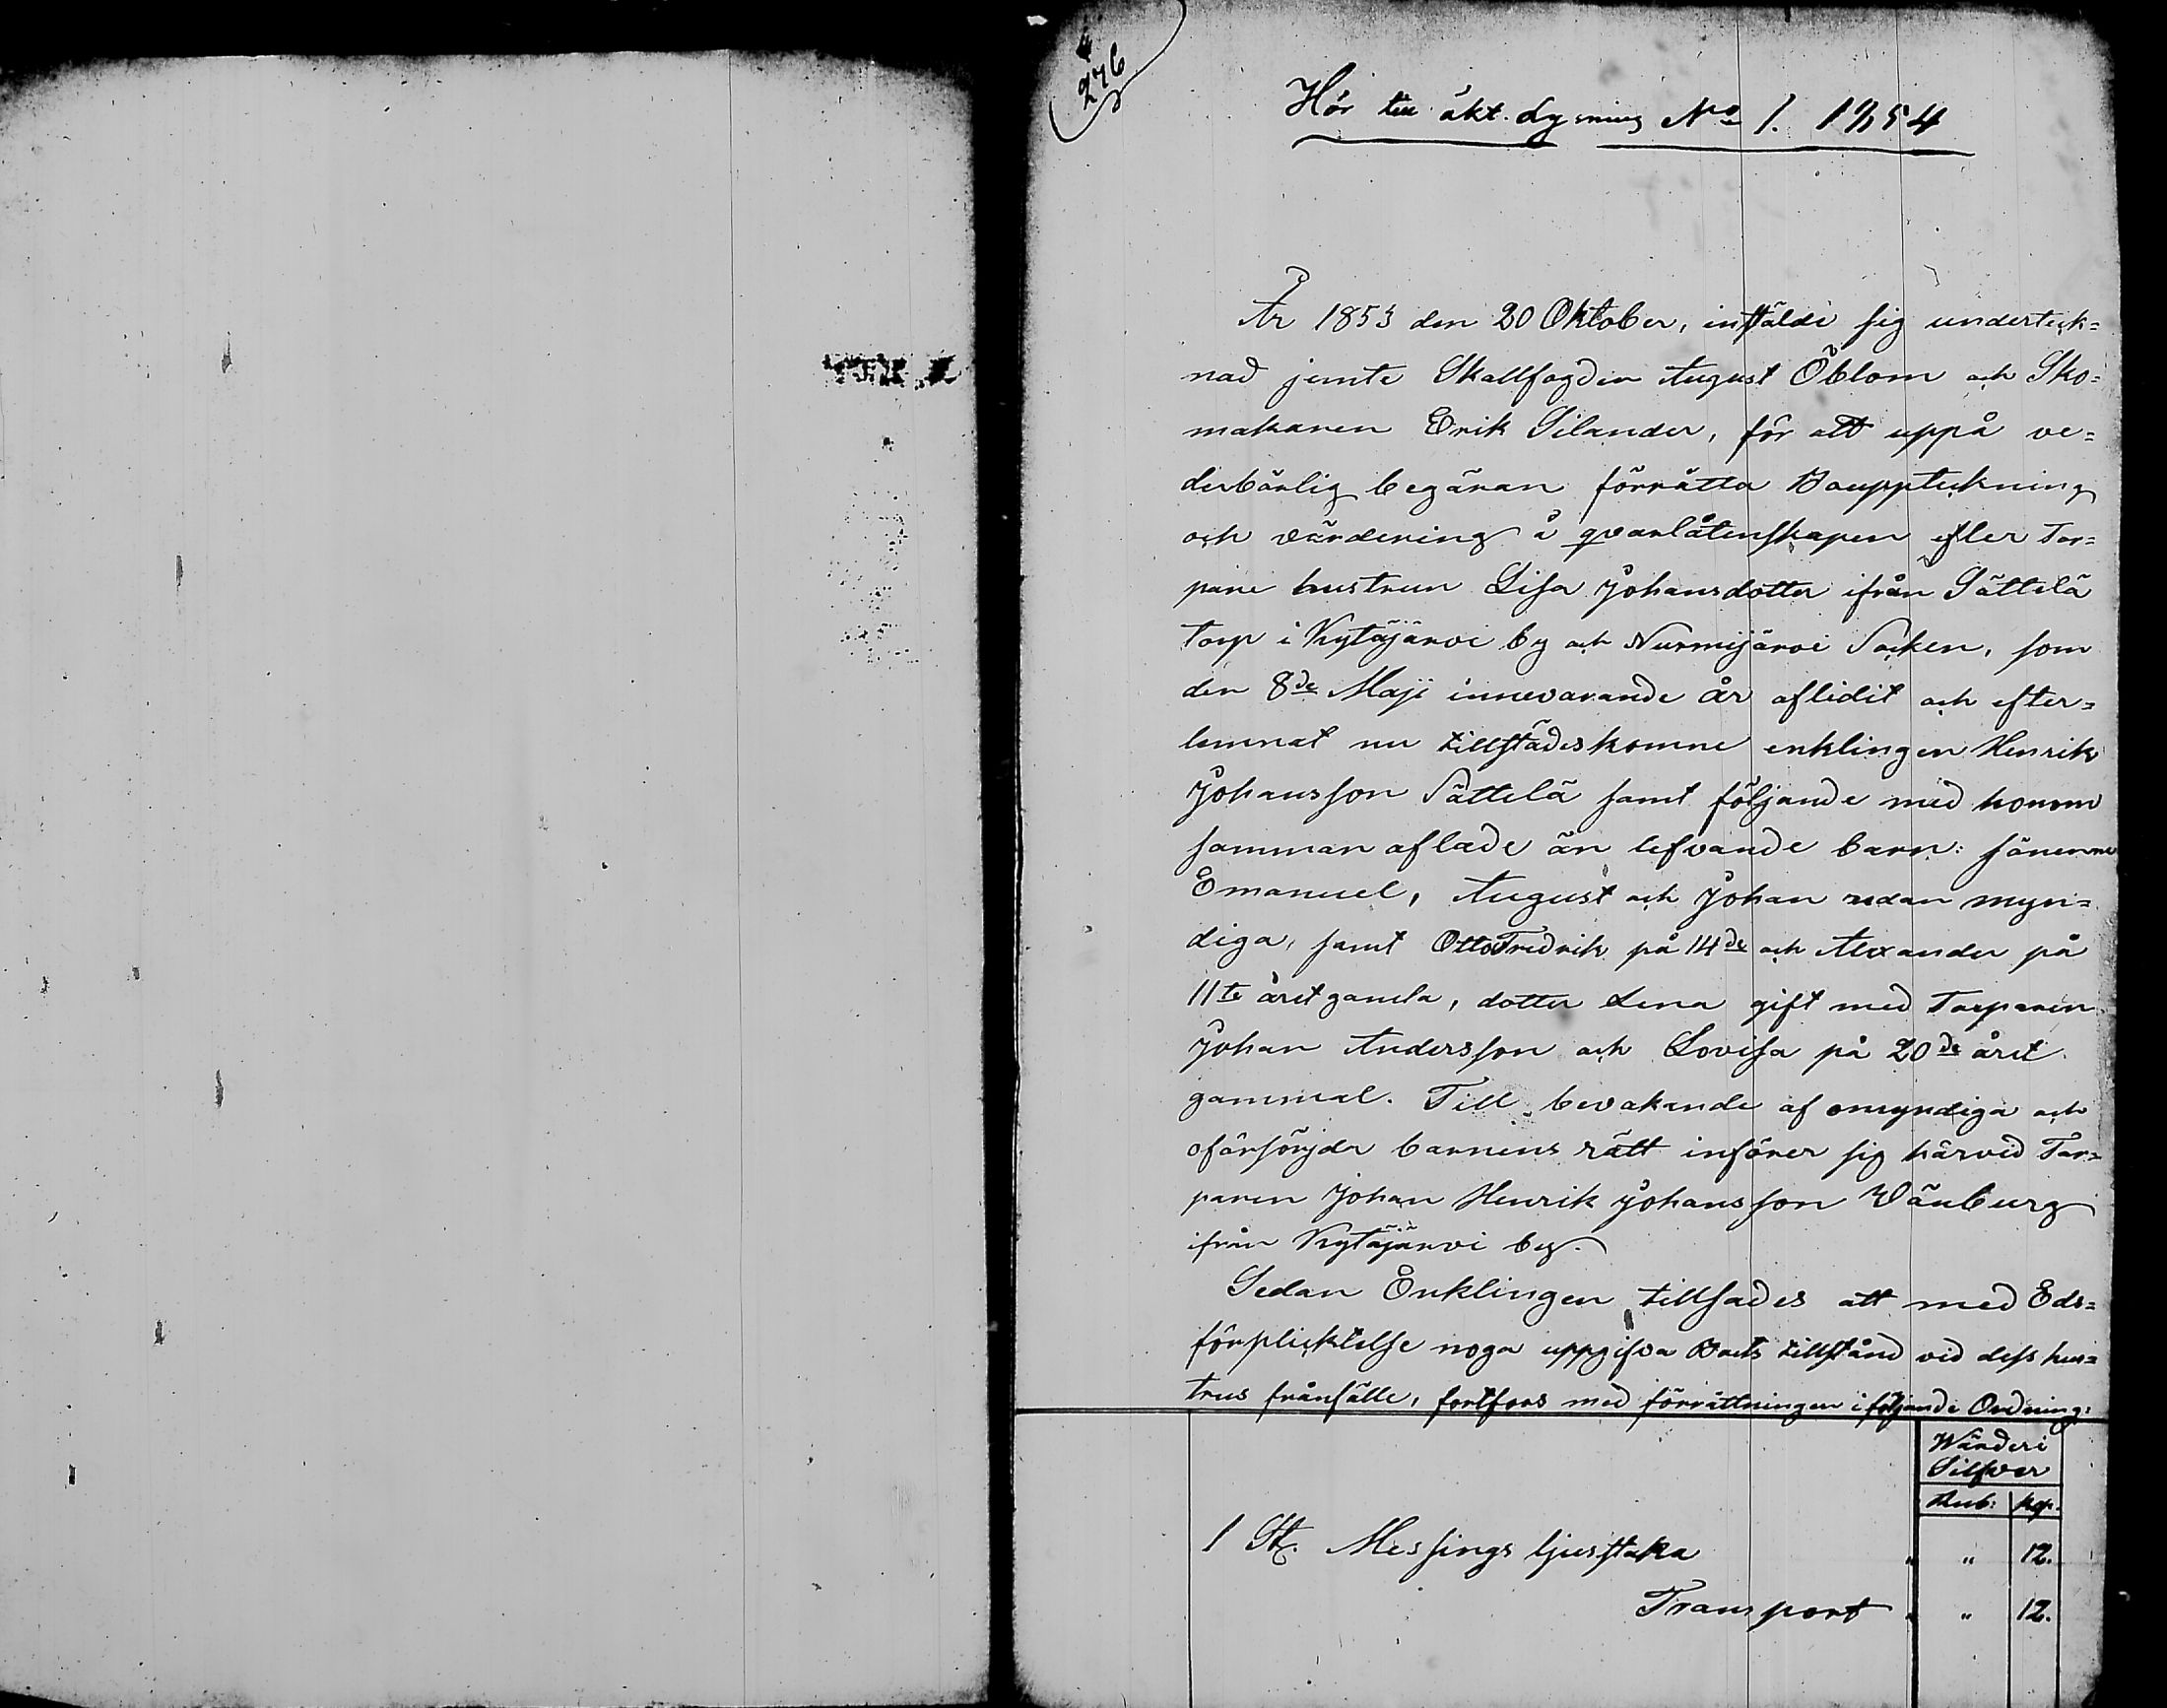 276
Hör till äkt. lysning No 1. 1854
År 1853 den 20 Oktober, instälde sig underteck=
nad jemte Skallfogden August Öblom och Sko=
makaren Erik Silander, för att uppå ve=
derbörlig begäran förrätta Bouppteckning
och värdering å qvarlåtenskapen efter Tor=
pare hustrun Lisa Johansdotter ifrån Sättelä
torp i Kytäjärvi by och Nurmijärvi Socken, som
den 8de Maji innevarande år aflidit och efter=
lemnat nu tillstädeskomne enklingen Henrik
Johansson Sättelä samt följande med honom
samman aflade än lefvande barn: sönerne
Emanuel, August och Johan redan myn=
diga, samt Otto Fredrik på 14de och Alexander på
11te året gamla, dotter Lena gift med Torparen
Johan Andersson och Lovisa på 20de året
gammal. Till bevakande af omyndiga och
oförsörjda barnens rätt inföner sig härvid Tor=
paren Johan Henrik Johansson Wänburg
ifrån Kytäjärvi by.
Sedan Enklingen tillsades att med Eds=
förplicktelse noga uppgifva Boets tillstånd vid dess hus=
trus frånfälle, fortfors med förrättningen i följande Ordning:
Wärde i
Silfver
Rub: kop.
1 St. Messings ljusstaka " " 12.
Transport " " 12.